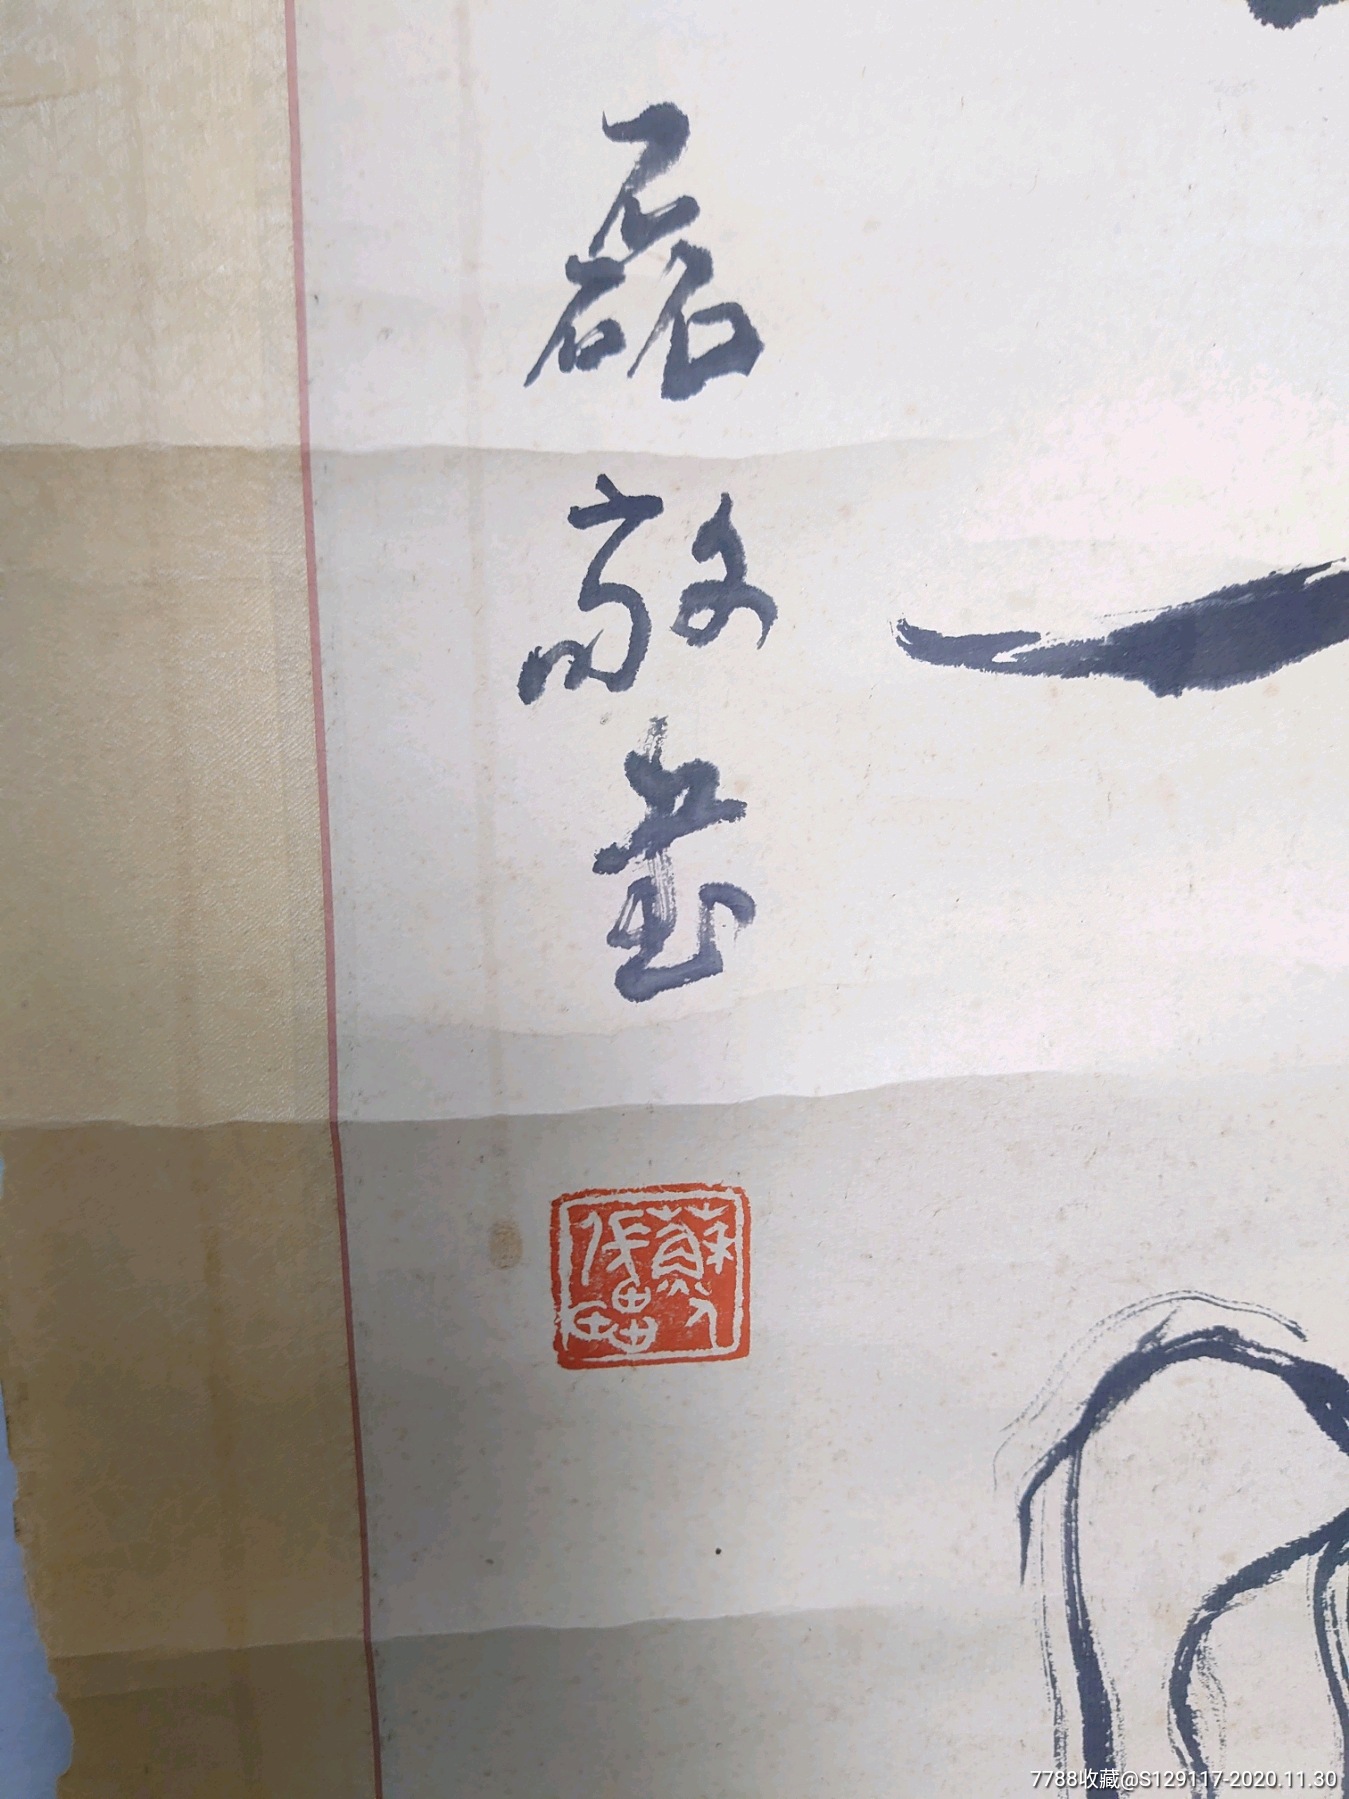 磊
敬
畫
蘇
7788收藏@S129117-2020.11.30